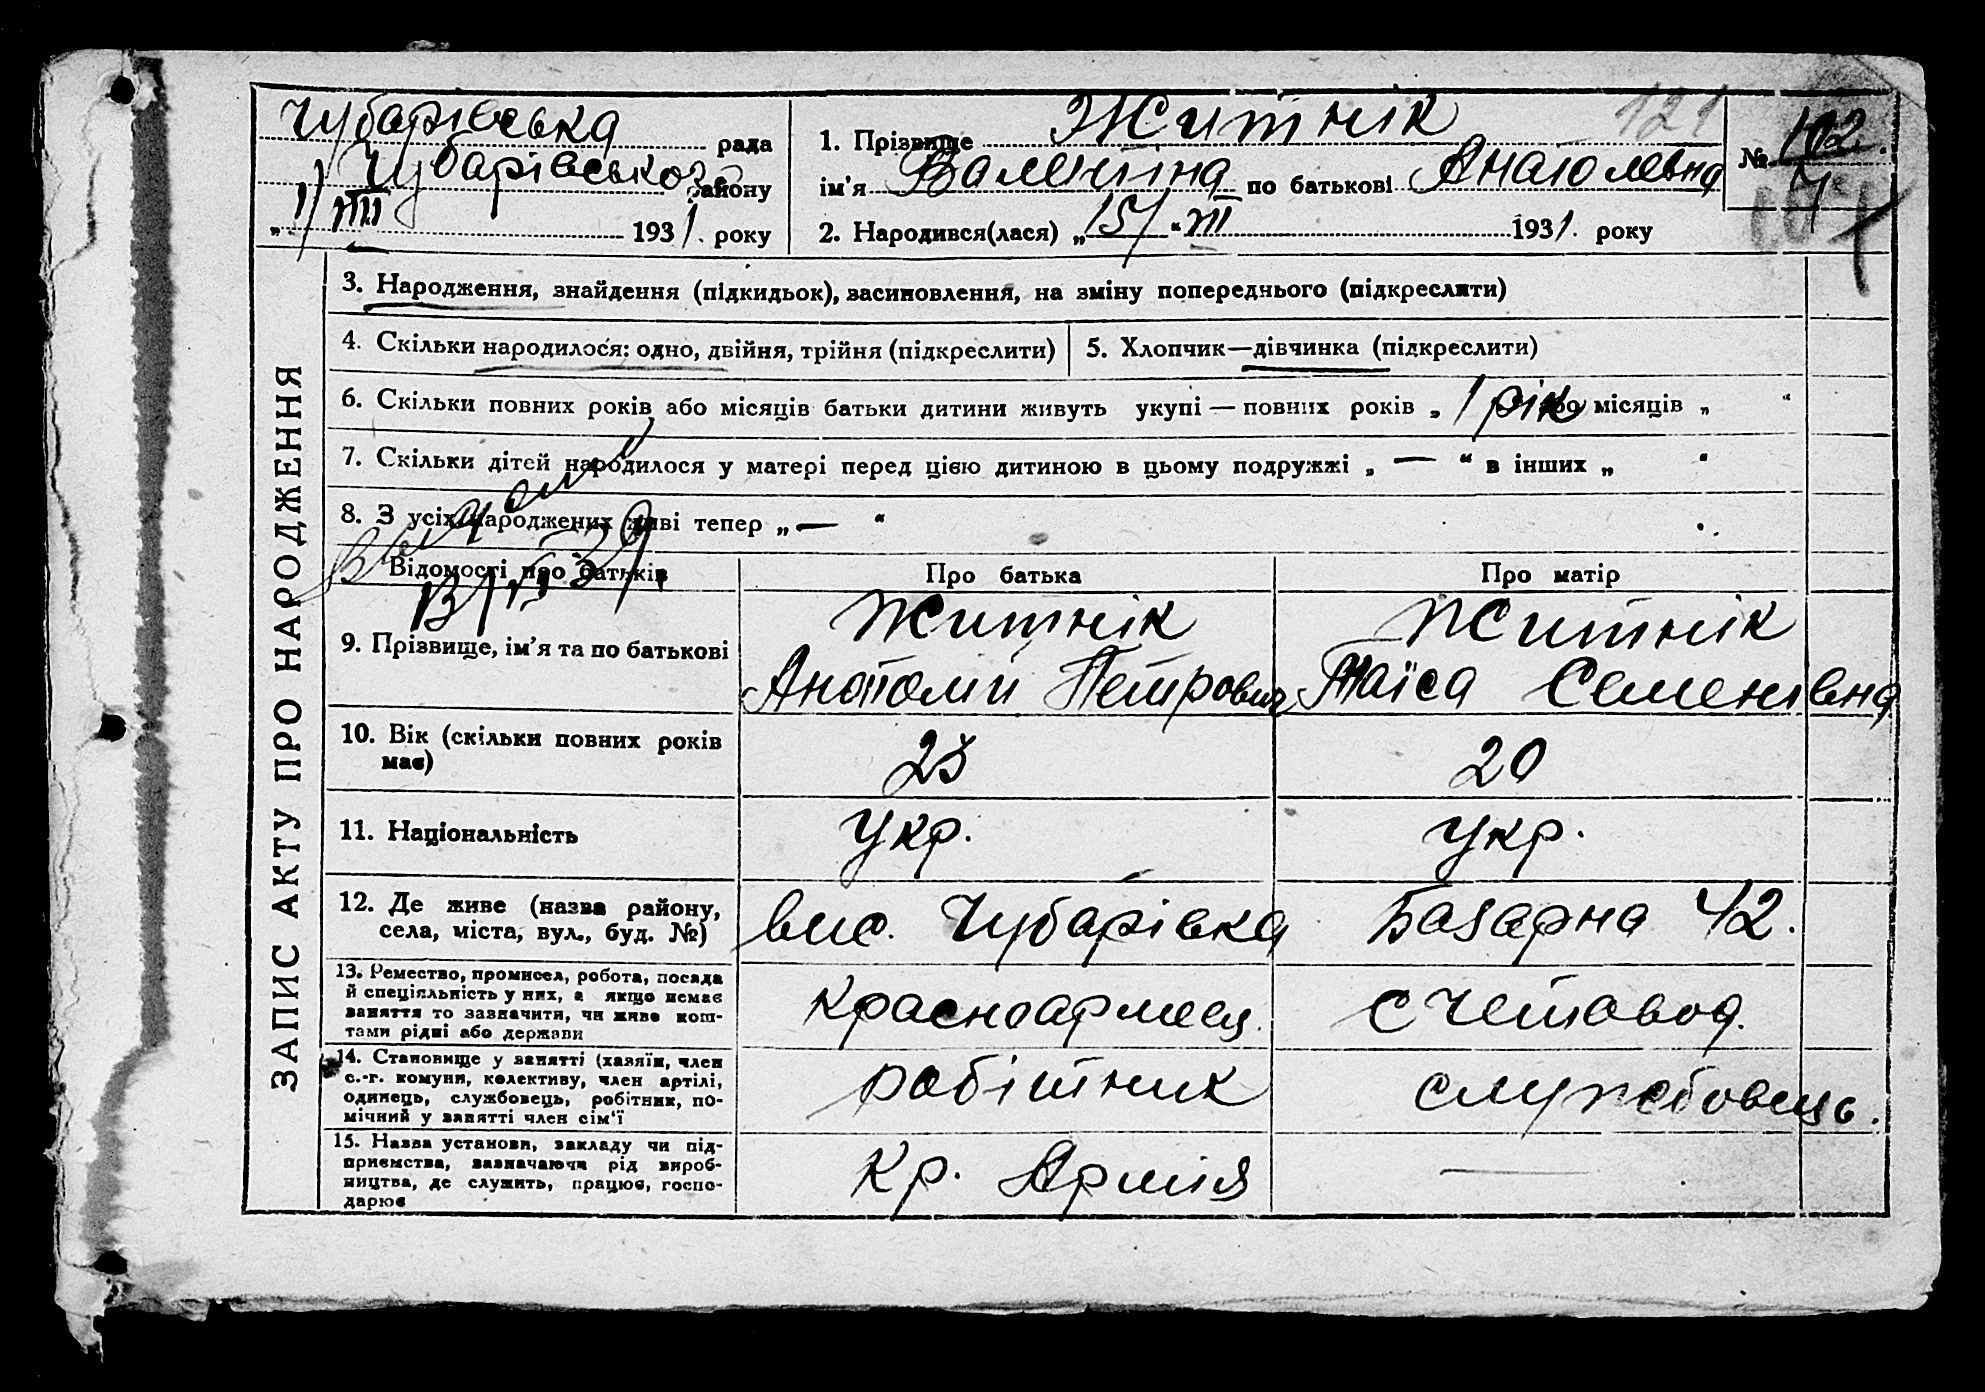 Чубарівська рада
Чубарівського району
„ 1/VIII 1931. року
1. Прізвище Житнік
ім'я Валентіна по батькові Анатолевна
2. Народився(лася) „15/“ VII 1931. року
121
№ 102.
ЗАПИС АКТУ ПРО НАРОДЖЕННЯ
3. Народження, знайдення (підкидьок), засиновлення, на зміну попереднього (підкреслити)
4. Скільки народилося: одно, двійня, трійня (підкреслити)
5. Хлопчик—дівчинка (підкреслити)
6. Скільки повних років або місяців батьки дитини живуть укупі — повних років „ 1 рік або місяців „ “
7. Скільки дітей народилося у матері перед цією дитиною в цьому подружжі „ — “ в інших „ “
8. З усіх народжених живі тепер „ — “
Відомості про батьків
Про батька
Про матір
9. Прізвище, ім'я та по батькові
Житнік
Анатолий Петрович
Житнік
Таїса Семенівна
10. Вік (скільки повних років
має)
23
20
11. Національність
Укр.
Укр.
12. Де живе (назва району,
села, міста, вул., буд. №)
вис. Чубарівка Базарна 42.
13. Ремество, промисел, робота, посада
й спеціяльність у них, а якщо немає
заняття то зазначити, чи живе кош-
тами рідні або держави
Красноармеец.
Счетовод.
14. Становище у занятті (хазяїн, член
с.-г. комуни, колективу, член артілі,
одинець, службовець, робітник, по-
мічний у занятті член сім'ї
робітник
службовець.
15. Назва установи, закладу чи під-
приємства, зазначаючи рід вироб-
ництва, де служить, працює, госпо-
дарює
Кр. Армія
—